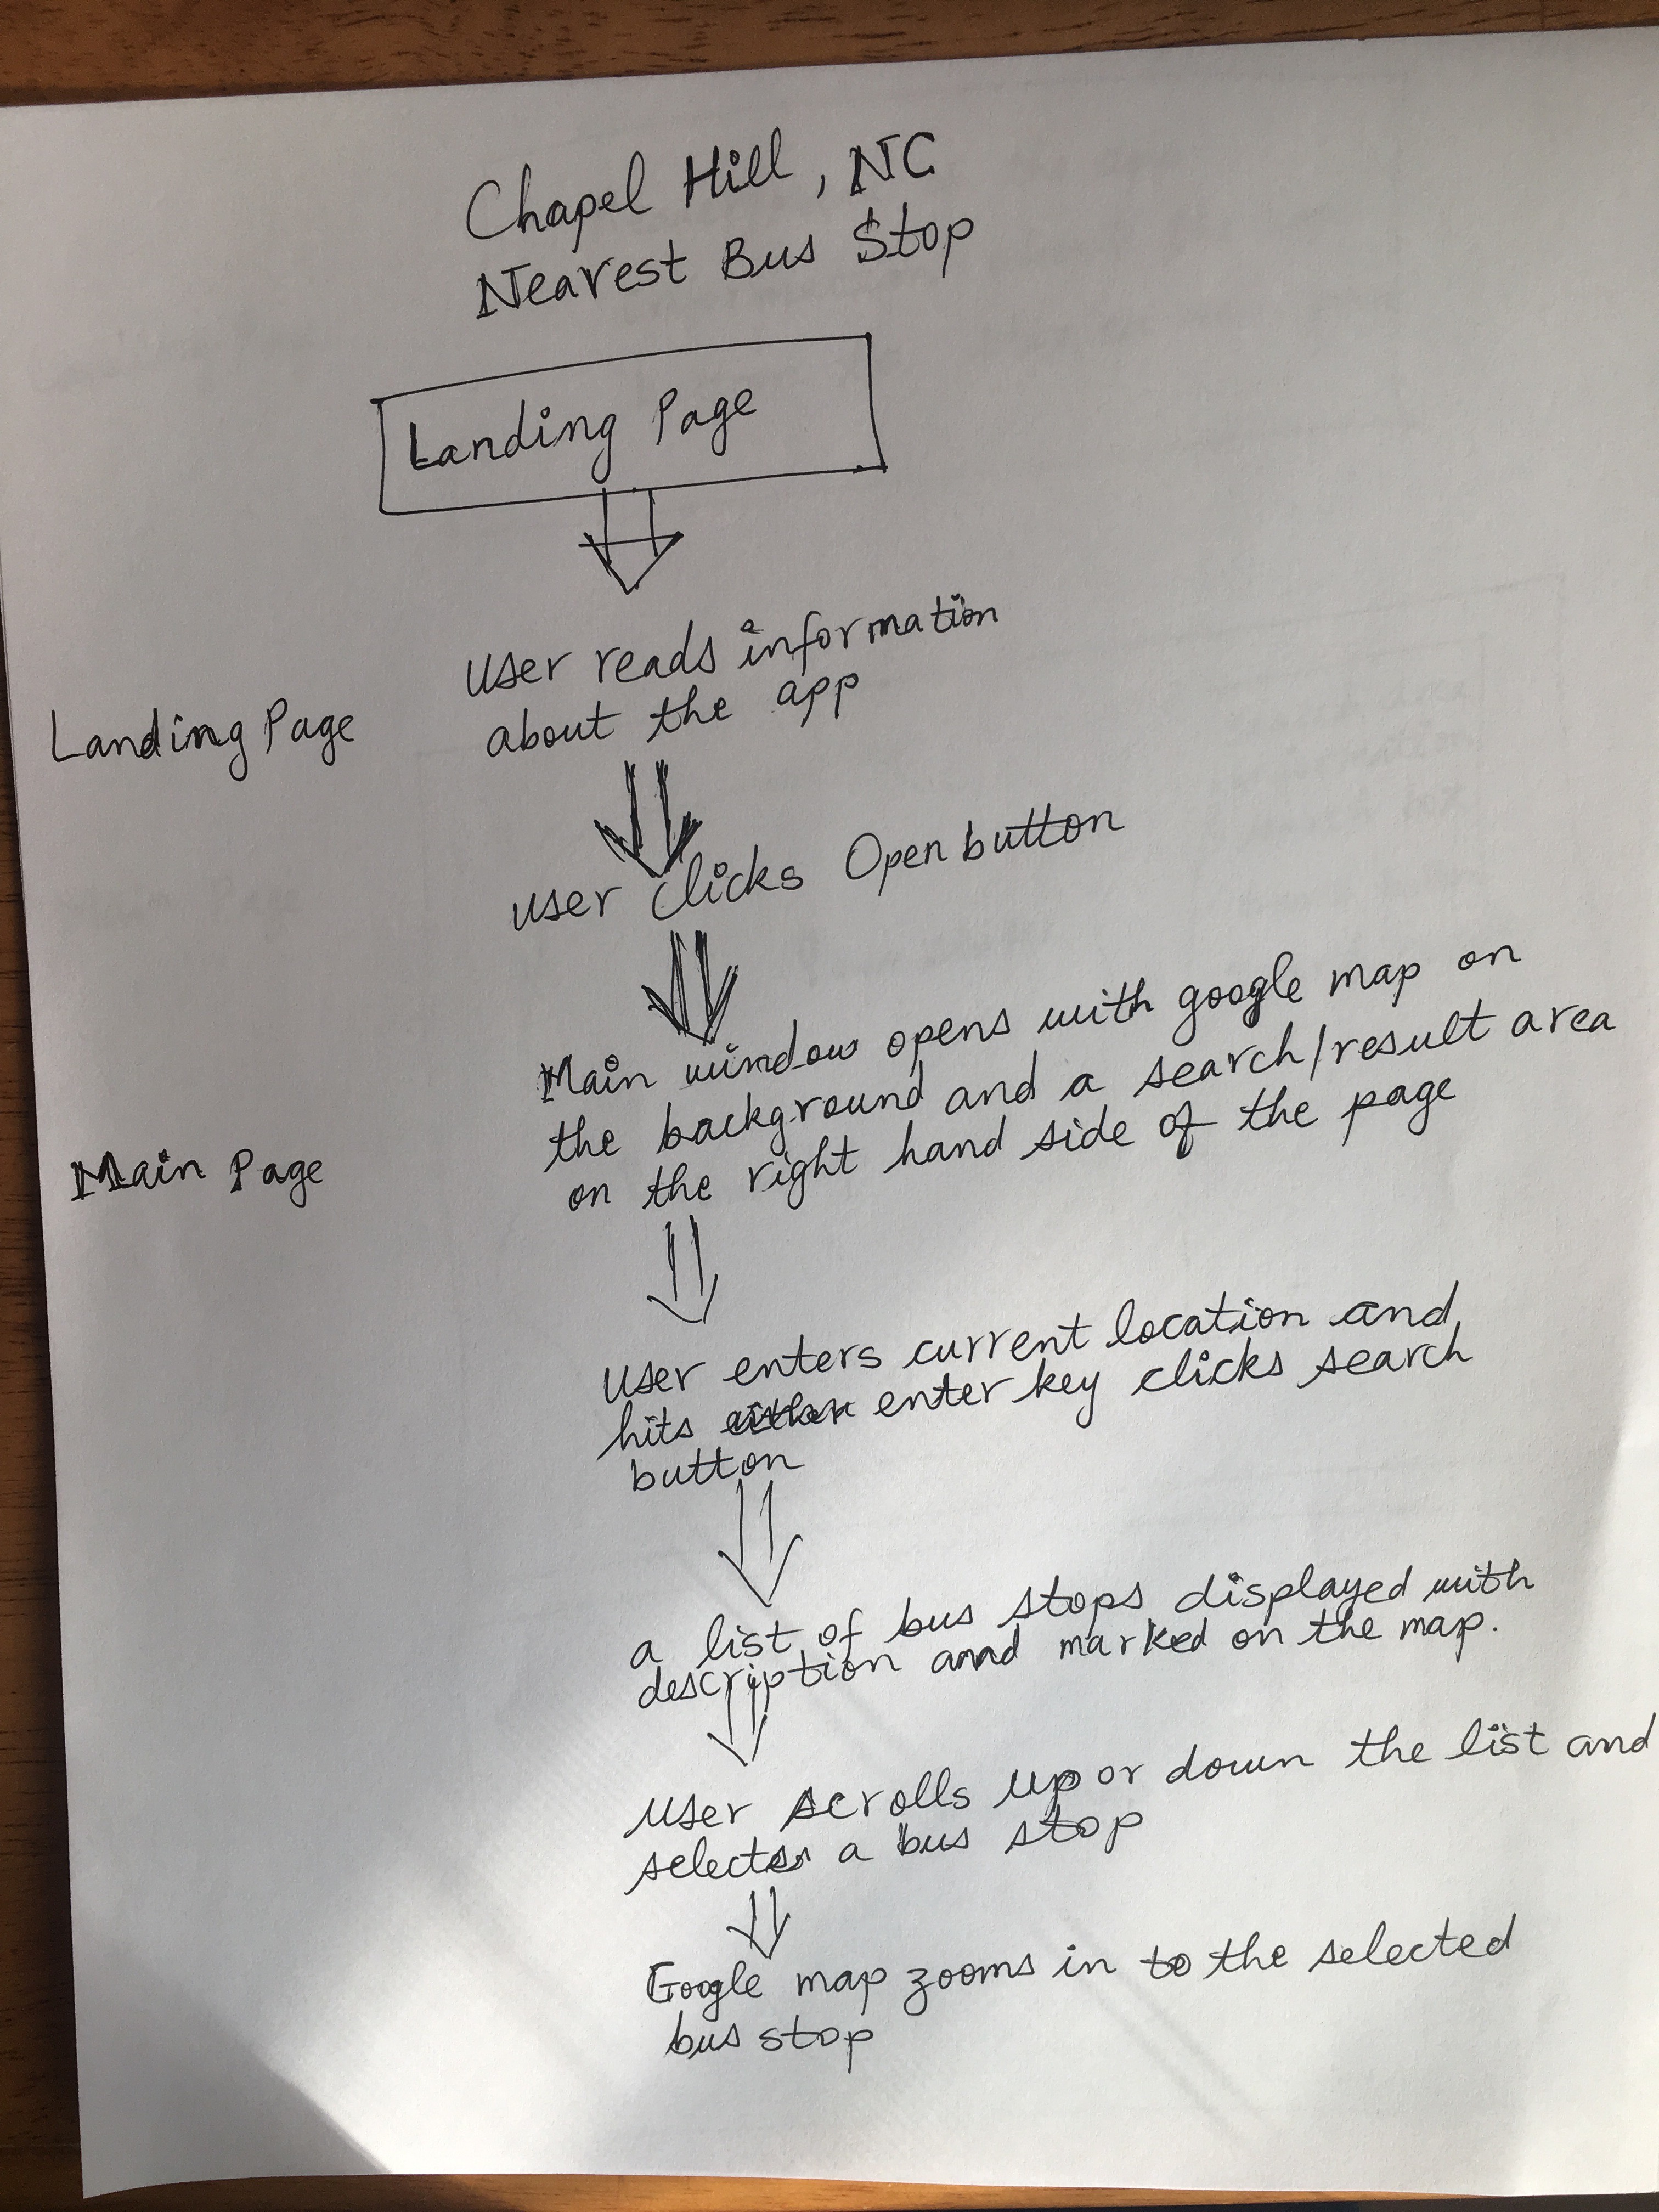 Chapel Hill, NC
Nearest Bus Stop
Landing Page
User reads information
about the app
Landing Page
User clicks Open button
Main window opens with google map on
the background and a search/result area
on the right hand side of the page
Main Page
User enters current location and
hits either enter key clicks search
button
a list of bus stops displayed with
description and marked on the map.
User scrolls up or down the list and
selects a bus stop
Google map zooms in to the selected
bus stop